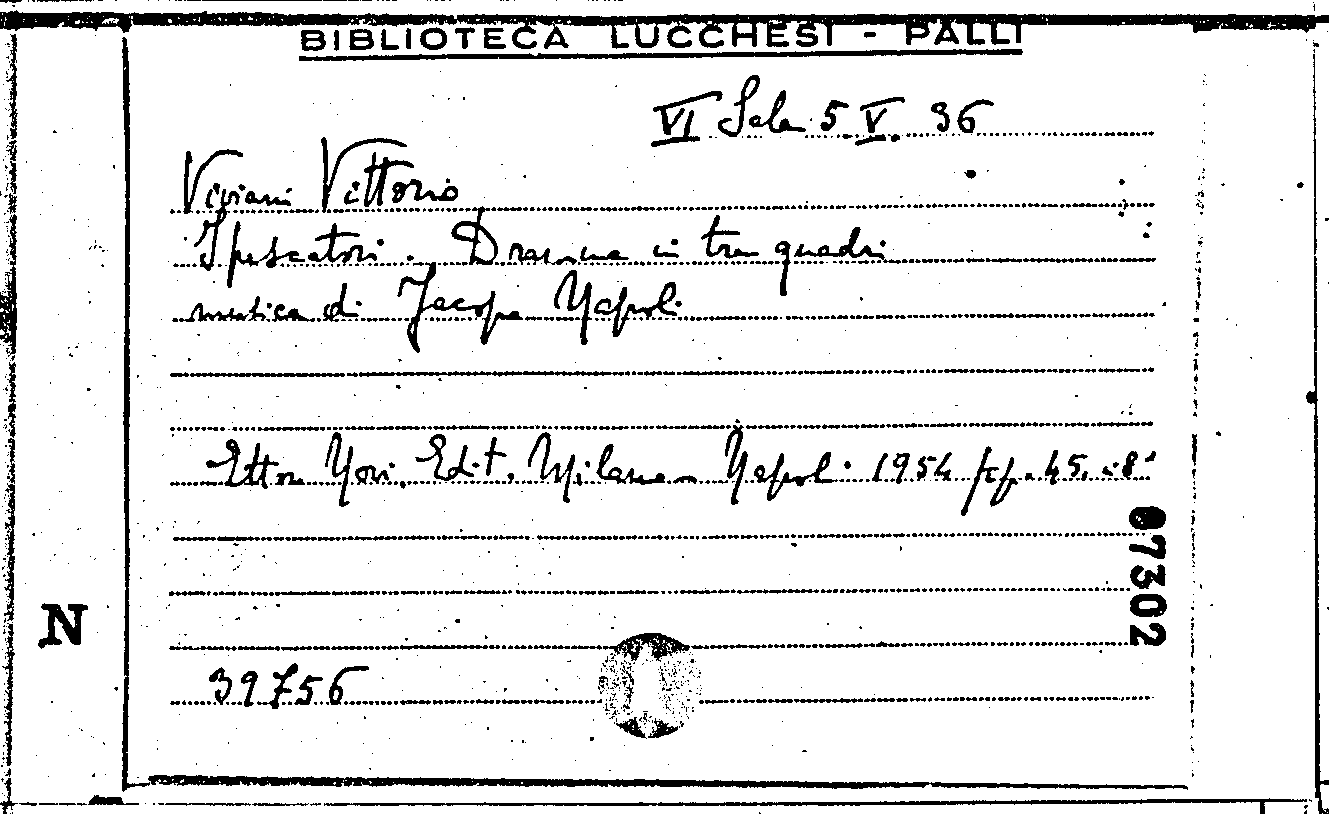 BIBLIOTECA LUCCHESI - PALLI
VI Sala 5. V. 36
Viviani Vittorio
I pescatori. Dramma in tre quadri
musica di Jacopo Napoli
Ettore Novi. Edit. Milano Napoli 1954 pp. 45. in 8°
87302
N
39756